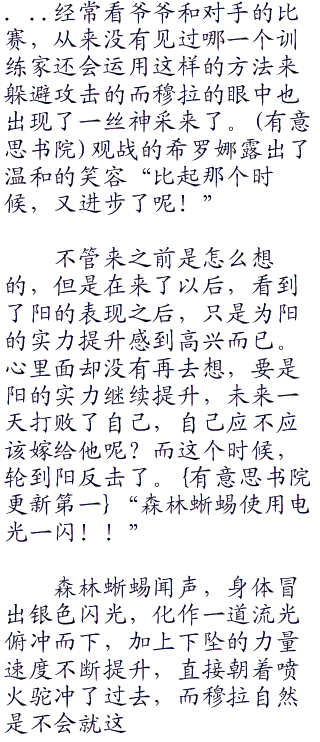 ...经常看爷爷和对手的比
赛，从来没有见过哪一个训
练家还会运用这样的方法来
躲避攻击的而穆拉的眼中也
出现了一丝神采来了。(有意
思书院)观战的希罗娜露出了
温和的笑容“比起那个时
候，又进步了呢！”
不管来之前是怎么想
的，但是在来了以后，看到
了阳的表现之后，只是为阳
的实力提升感到高兴而已。
心里面却没有再去想，要是
阳的实力继续提升，未来一
天打败了自己，自己应不应
该嫁给他呢？而这个时候，
轮到阳反击了。{有意思书院
更新第一}“森林蜥蜴使用电
光一闪！！”
森林蜥蜴闻声，身体冒
出银色闪光，化作一道流光
俯冲而下，加上下坠的力量
速度不断提升，直接朝着喷
火驼冲了过去，而穆拉自然
是不会就这